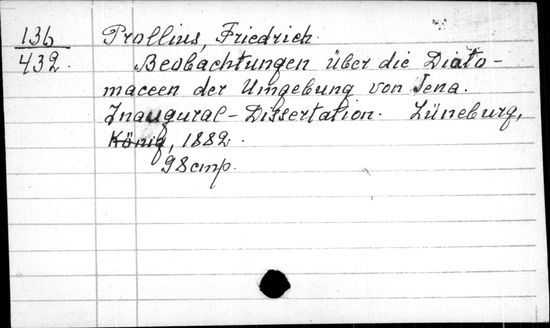 136
432.
Prollius, Friedrich.
Beobachtungen über die Diato-
maceen der Umgebung von Jena.
Inaugural-Dissertation. Lüneburg,
König, 1882.
98 стр.